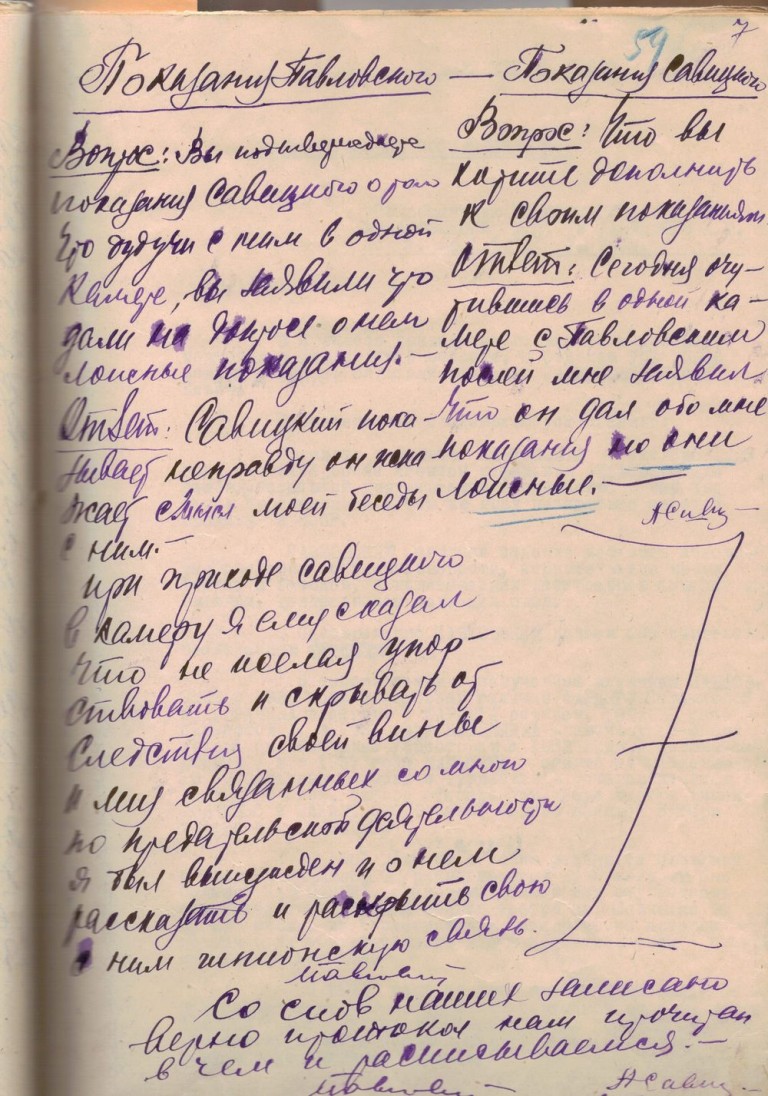 7
54
Показания Павловского — Показания Савицкого
Вопрос: Вы подтверждаете
показания Савицкого о том
что будучи с ним в одной
камере, вы заявили что
дали на допросе о нем
ложные показания.—
Ответ: Савицкий пока-
зывает неправду он иска
жает смысл моей беседы
с ним.—
При приходе Савицкого
в камеру я ему сказал
что не желая упор-
ствовать и скрывать от
следствия своей вины
и лиц связанных со мною
по предательской деятельности
я был вынужден и о нем
рассказать и раскрыть свою
с ним шпионскую связь.
Вопрос: Что вы
хотите дополнить
к своим показаниям
Ответ: Сегодня очу-
тившись в одной ка-
мере с Павловским
послей мне заявил
что он дал обо мне
показания но они
ложные.—
АСавиц—
Со слов наших записано
верно протокол нам прочитан
в чем и расписываемся.—
АСавиц—